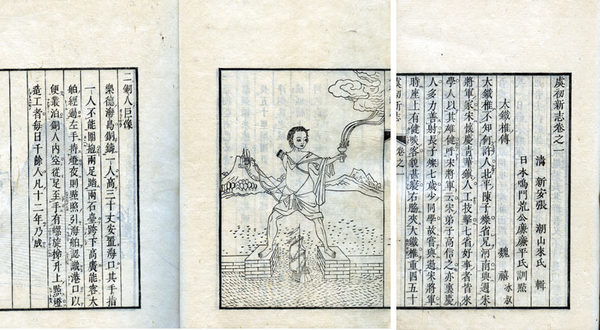 虞初新志卷之一
清 新安張 潮山來氏 輯
日本鳴門荒公廉廉平氏訓點
大鐵椎傳
魏 禧 冰叔
大鐵椎不知何許人北平陳子燦省兄河南與遇宋
將軍家宋懷慶青華鎮人工技擊七省好事者皆來
學人以其雄健呼宋將軍云宋弟子高信之亦懷慶
人多力善射長子燦七歲少同學故嘗與過宋將軍
時座上有健啖客貌甚寢右脇夾大鐵椎重四五十
虞初新志 卷之一
二銅人巨像
樂德海島銅鑄一人高三十丈安置海口其手指
一人不能圍抱兩足踏兩石臺跨下高廣能容大
舶經過左手持燈夜則點照引海舶認識港口以
便叢泊銅人内空從足至手有螺旋梯升上點燈
造工者每日千餘人凡十二年乃成